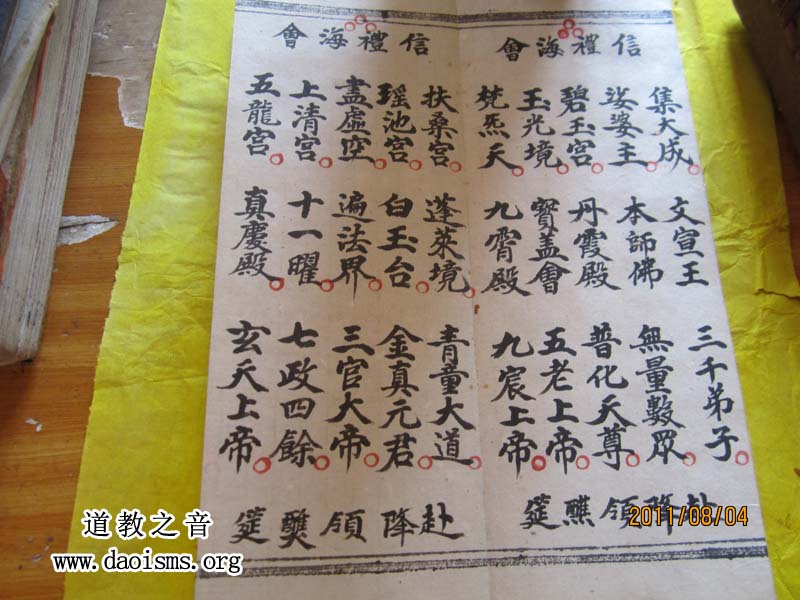 信禮海會
集大成 文宣王 三千弟子
娑婆主 本師佛 無量數眾
碧玉宮 丹霞殿 普化天尊
玉光境 寶蓋會 五老上帝
梵炁天 九霄殿 九宸上帝
赴降領醮筵
信禮海會
扶桑宮 蓬萊境 青童大道
瑶池宮 白玉台 金真元君
盡虛空 遍法界 三官大帝
上清宮 十一曜 七政四餘
五龍宮 真慶殿 玄天上帝
赴降領醮筵
2011/08/04
道教之音
www.daoisms.org